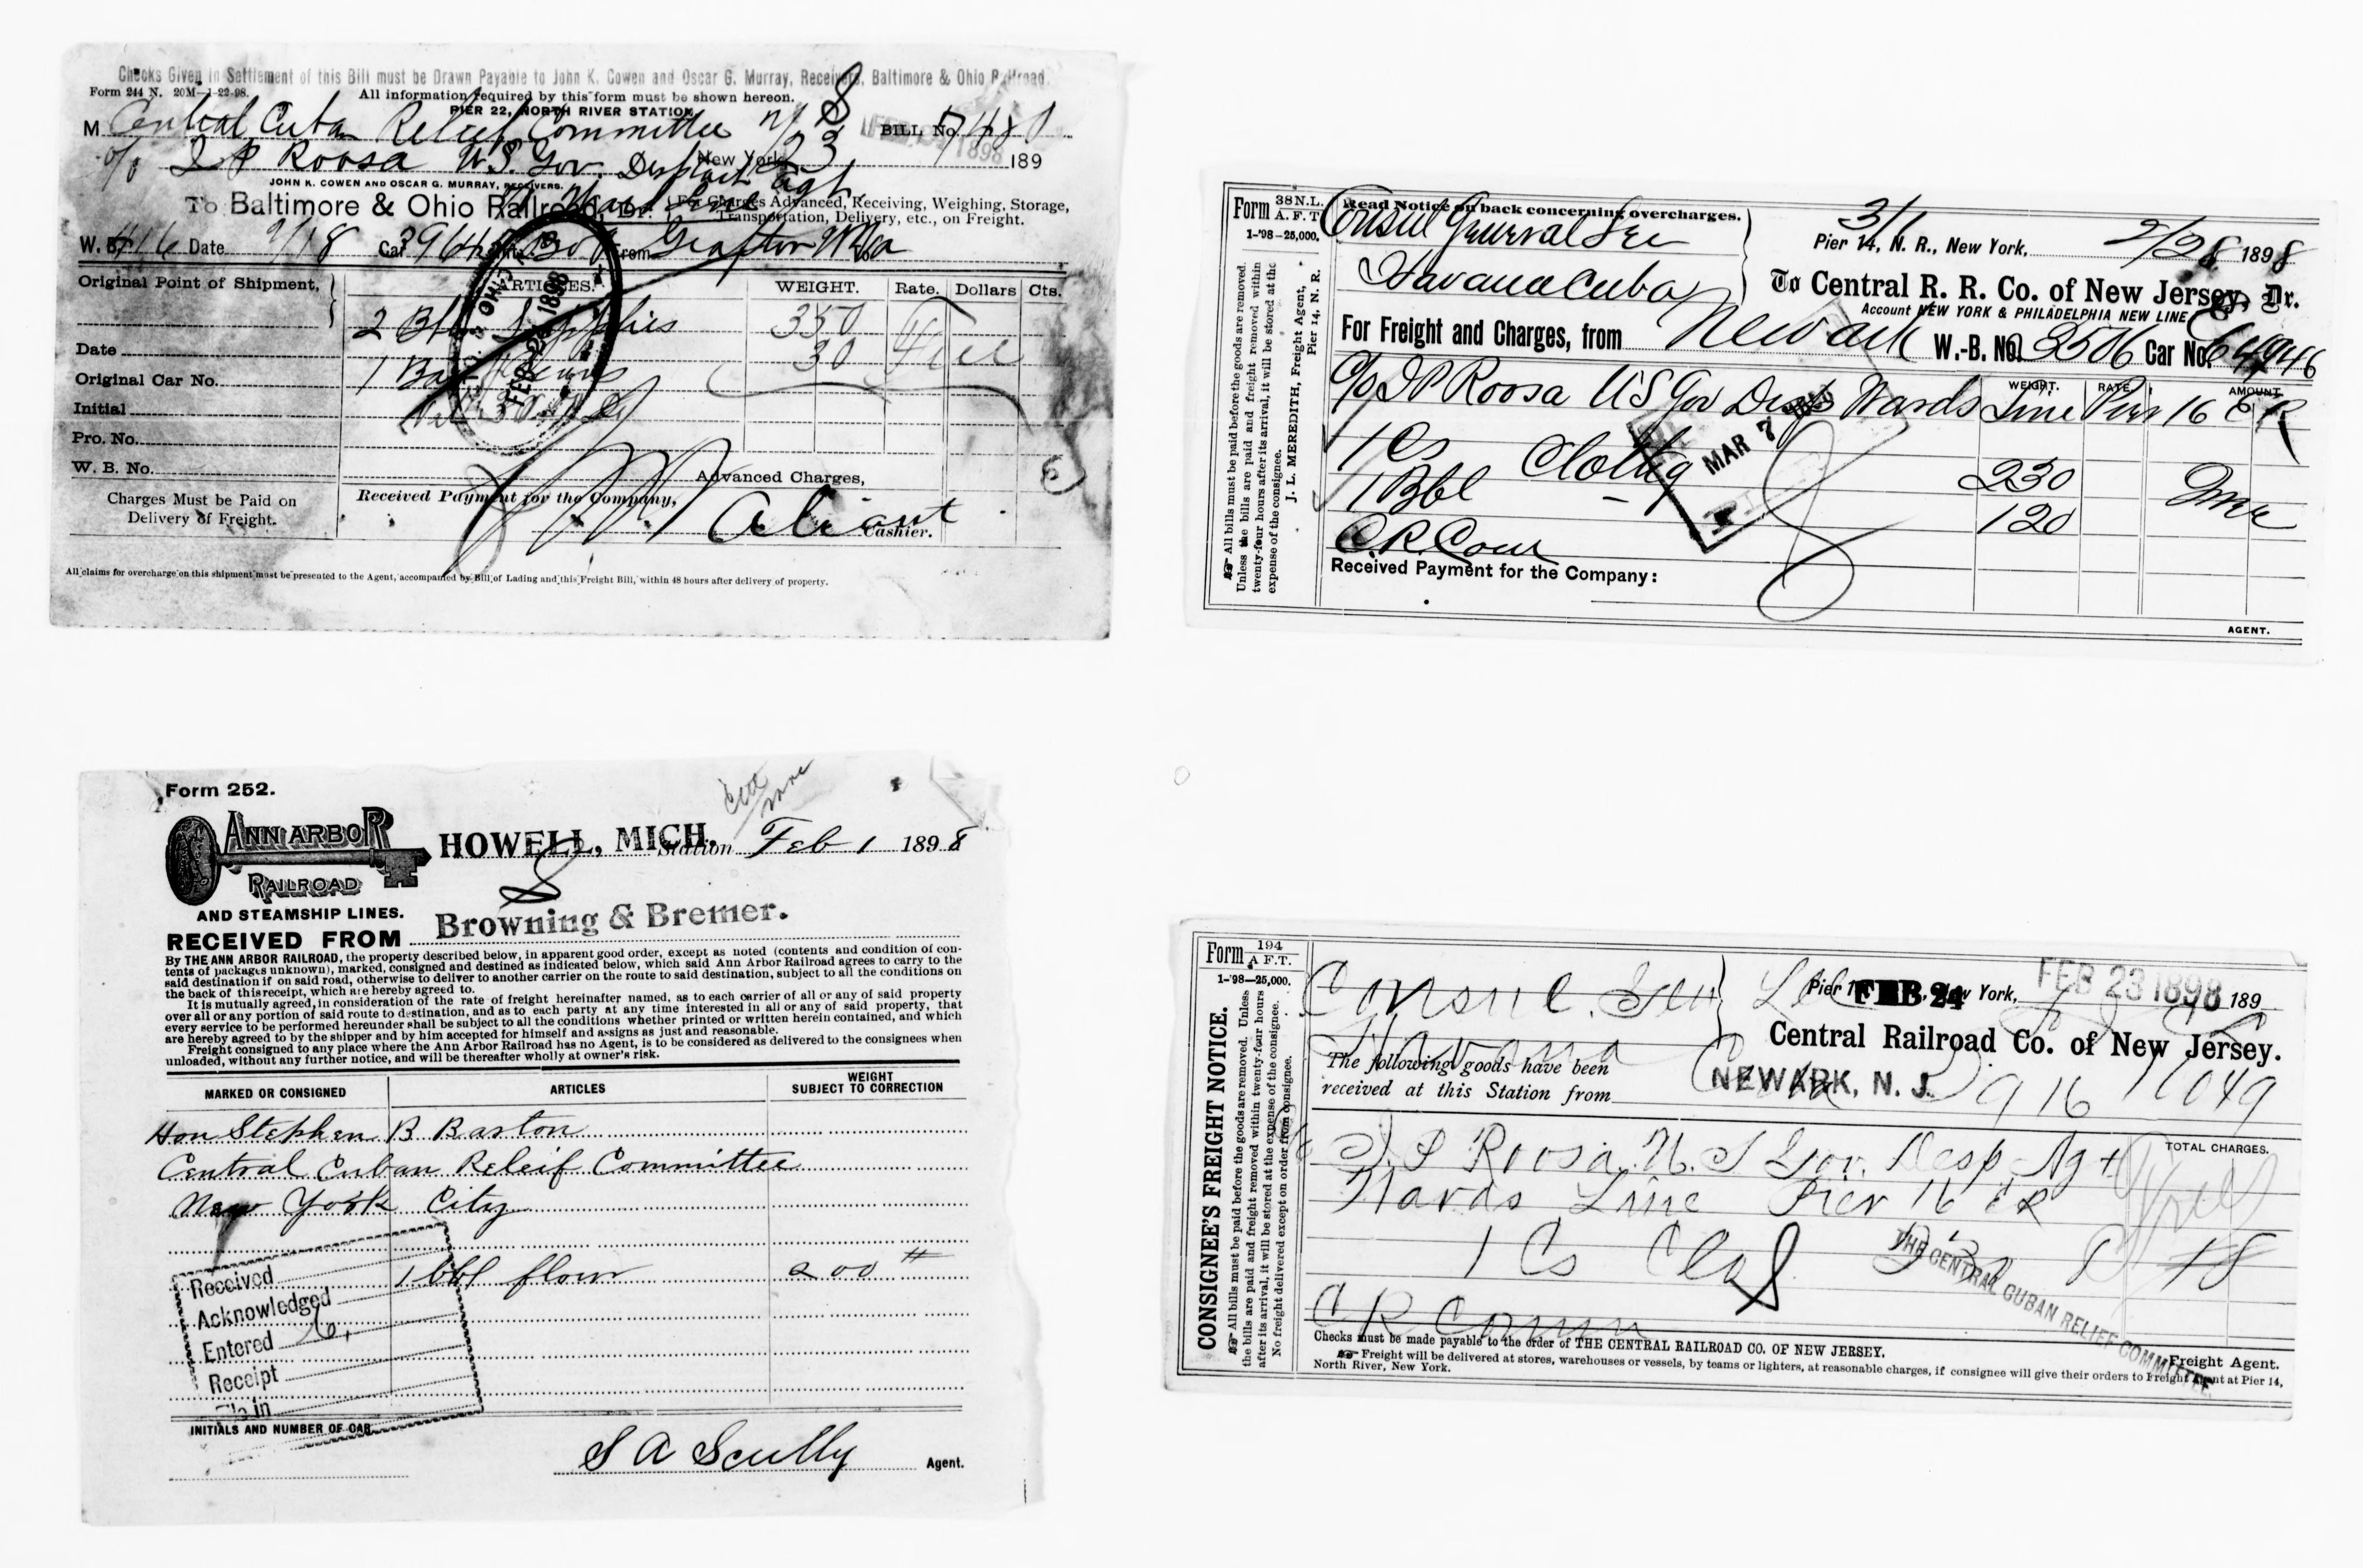 Checks Given in Settlement of this Bill must be Drawn Payable to John K. Cowen and Oscar G. Murray, Receivers, Baltimore & Ohio Railroad.
Form 244 N. 20M—1-22-98.
All information required by this form must be shown hereon.
PIER 22, NORTH RIVER STATION.
M Central Cuban Relief Committee
BILL No. 7480
c/o I P Roosa U.S. Gov. Despatch Agt
New York, 2/23 1898 189
JOHN K. COWEN AND OSCAR G. MURRAY, RECEIVERS.
To Baltimore & Ohio Railroad, Dr. For Charges Advanced, Receiving, Weighing, Storage, Transportation, Delivery, etc., on Freight.
W. B. 416 Date 2/18 Car From Grafton W Va
Original Point of Shipment,
ARTICLES. WEIGHT. Rate. Dollars Cts.
2 Supplies 350 Free
Date
1 30
Original Car No.
FEB 1898
Initial
Pro. No.
W. B. No.
Advanced Charges,
Charges Must be Paid on Delivery of Freight.
Received Payment for the Company,
Cashier.
All claims for overcharge on this shipment must be presented to the Agent, accompanied by Bill of Lading and this Freight Bill, within 48 hours after delivery of property.
Form 38 N.L. A. F. T.
1-'98-25,000.
Read Notice on back concerning overcharges.
Consul General Lee
Havana Cuba
3/1
Pier 14, N. R., New York, 2/28 1898
To Central R. R. Co. of New Jersey, Dr.
Account NEW YORK & PHILADELPHIA NEW LINE
For Freight and Charges, from Newark W.-B. No. 2506 Car No.
WEIGHT. RATE. AMOUNT.
c/o I P Roosa US Gov Desp Wards Line Pier 16 E R
1 Cs Clothg 230
1 Bbl 120
MAR 7
C.R. Com
Received Payment for the Company:
AGENT.
All bills must be paid before the goods are removed.
Unless the bills are paid and freight removed within
twenty-four hours after its arrival, it will be stored at the
expense of the consignee.
J. L. MEREDITH, Freight Agent,
Pier 14, N. R.
Form 252.
ANN ARBOR
RAILROAD
AND STEAMSHIP LINES.
HOWELL, MICH. Station Feb 1 1898
RECEIVED FROM Browning & Bremer.
By THE ANN ARBOR RAILROAD, the property described below, in apparent good order, except as noted (contents and condition of con-
tents of packages unknown), marked, consigned and destined as indicated below, which said Ann Arbor Railroad agrees to carry to the
said destination if on said road, otherwise to deliver to another carrier on the route to said destination, subject to all the conditions on
the back of this receipt, which are hereby agreed to.
It is mutually agreed, in consideration of the rate of freight hereinafter named, as to each carrier of all or any of said property
over all or any portion of said route to destination, and as to each party at any time interested in all or any of said property, that
every service to be performed hereunder shall be subject to all the conditions whether printed or written herein contained, and which
are hereby agreed to by the shipper and by him accepted for himself and assigns as just and reasonable.
Freight consigned to any place where the Ann Arbor Railroad has no Agent, is to be considered as delivered to the consignees when
unloaded, without any further notice, and will be thereafter wholly at owner's risk.
MARKED OR CONSIGNED ARTICLES WEIGHT SUBJECT TO CORRECTION
Hon Stephen B Barton
Central Cuban Releif Committee
New York City
1 bbl flour 200 #
Received
Acknowledged
Entered
Receipt
File in
INITIALS AND NUMBER OF CAR
S A Scully Agent.
Form 194 A F.T.
1-'98-25,000.
CONSIGNEE'S FREIGHT NOTICE.
All bills must be paid before the goods are removed. Unless
the bills are paid and freight removed within twenty-four hours
after its arrival, it will be stored at the expense of the consignee.
No freight delivered except on order from consignee.
Consul Gen Lee
Havana
Pier FEB 24 New York, FEB 23 1898 189
Central Railroad Co. of New Jersey.
The following goods have been
received at this Station from NEWARK, N. J.
TOTAL CHARGES.
I P Roosa U. S Gov. Desp Agt
Wards Line Pier 16 ER
1 Cs
THE CENTRAL CUBAN RELIEF COMMITTEE
C R Comm
Checks must be made payable to the order of THE CENTRAL RAILROAD CO. OF NEW JERSEY.
Freight Agent.
Freight will be delivered at stores, warehouses or vessels, by teams or lighters, at reasonable charges, if consignee will give their orders to Freight Agent at Pier 14,
North River, New York.